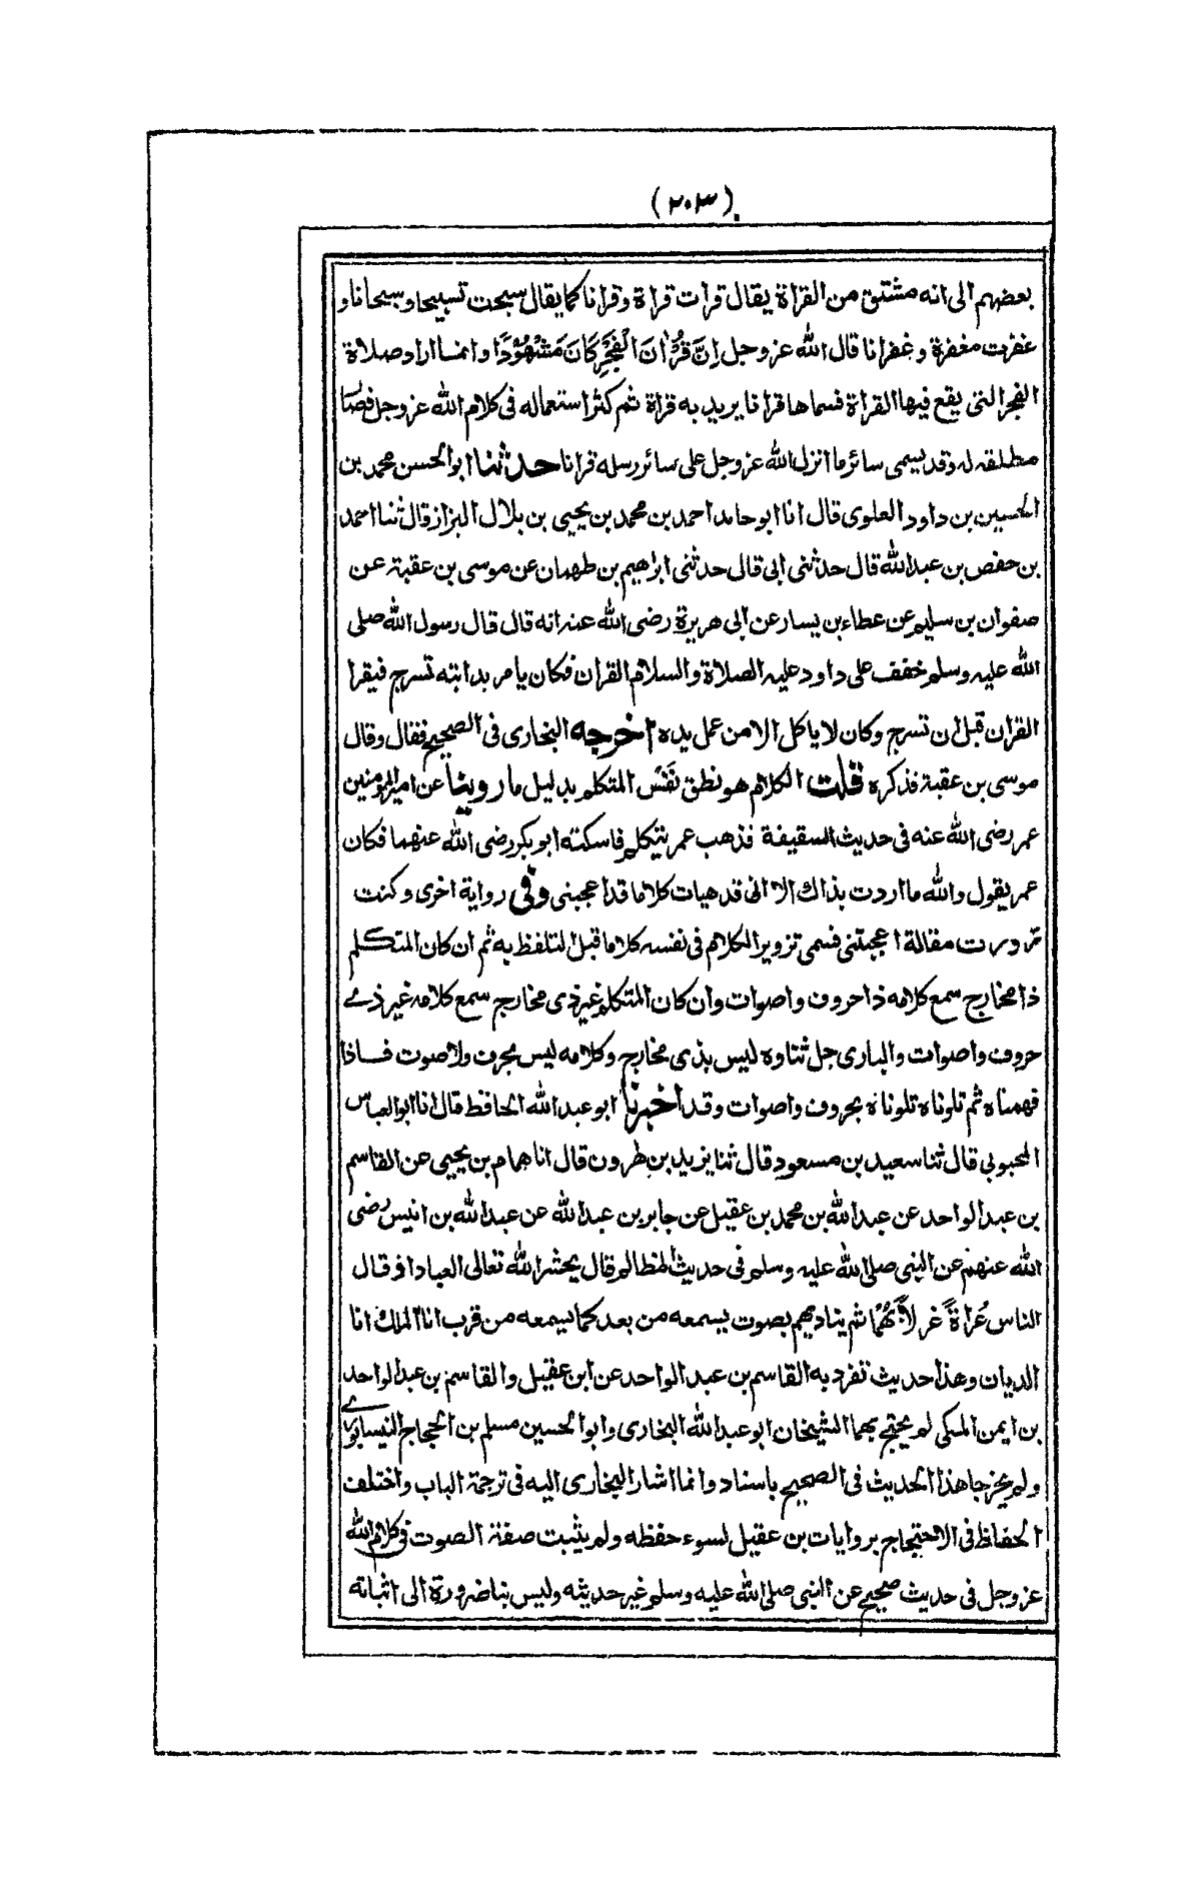 (٢٠٣)
بعضهم الى انه مشتق من القراة يقال قرات قراة وقرانا كما يقال سبحت تسبيحا وسبحانا و
غفرت مغفرة وغفرانا قال الله عز وجل اِنَّ قُرْاٰنَ الْفَجْرِ كَانَ مَشْهُوْدًا وانما اراد صلاة
الفجر التى يقع فيها القراة فسماها قرانا يريد به قراة ثم كثر استعماله فى كلام الله عز وجل فصا
مطلقه له وقد يسمى سائر ما انزل الله عز وجل على سائر رسله قرانا حدثنا ابو الحسن محمد بن
الحسين بن داود العلوى قال انا ابو حامد احمد بن محمد بن يحيى بن بلال البزاز قال ثنا احمد
بن حفص بن عبد الله قال حدثنى ابى قال حدثنى ابراهيم بن طهمان عن موسى بن عقبة عن
صفوان بن سليم عن عطاء بن يسار عن ابى هريرة رضى الله عنه انه قال قال رسول الله صلى
الله عليه وسلم خفف على داود عليه الصلاة والسلام القران فكان يامر بدابته تسرج فيقرا
القران قبل ان تسرج وكان لا ياكل الا من عمل يده اخرجه البخارى فى الصحيح فقال وقال
موسى بن عقبة فذكره قلت الكلام هو نطق نَفْسِ المتكلم بدليل ما روينا عن امير المؤمنين
عمر رضى الله عنه فى حديث السقيفة فذهب عمر يتكلم فاسكته ابو بكر رضى الله عنهما فكان
عمر يقول والله ما اردت بذاك الا انى قد هيات كلاما قد اعجبنى وفى رواية اخرى وكنت
زورت مقالة اعجبتنى فسمى تزوير الكلام فى نفسه كلاما قبل التلفظ به ثم ان كان المتكلم
ذا مخارج سمع كلامه ذا حروف واصوات وان كان المتكلم غير ذى مخارج سمع كلامه غير ذے
حروف واصوات والبارى جل ثناوه ليس بذى مخارج وكلامه ليس بحرف ولا صوت فاذا
فهمناه ثم تلوناه تلوناه بحروف واصوات وقد اخبرنا ابو عبد الله الحافظ قال انا ابو العباس
المحبوبى قال ثنا سعيد بن مسعود قال ثنا يزيد بن هٰرون قال انا همام بن يحيى عن القاسم
بن عبد الواحد عن عبد الله بن محمد بن عقيل عن جابر بن عبد الله عن عبد الله بن انيس رضى
الله عنهم عن النبى صلى الله عليه وسلم فى حديث المظالم قال يحشر الله تعالى العباد او قال
الناس عُراةً غرلًا بُهْمًا ثم يناديهم بصوت يسمعه من بعد كما يسمعه من قرب انا الملك انا
الديان وهذا حديث تفرد به القاسم بن عبد الواحد عن ابن عقيل والقاسم بن عبد الواحد
بن ايمن المكى لم يحتج بهما الشيخان ابو عبد الله البخارى وابو الحسين مسلم بن الحجاج النيسابورے
ولم يخرجا هذا الحديث فى الصحيح باسناده وانما اشار البخارى اليه فى ترجمة الباب واختلف
الحفاظ فى الاحتجاج بروايات بن عقيل لسوء حفظه ولم يثبت صفة الصوت فى كلام الله
عز وجل فى حديث صحيح عن النبى صلى الله عليه وسلم غير حديثه وليس بنا ضرورة الى اثباته